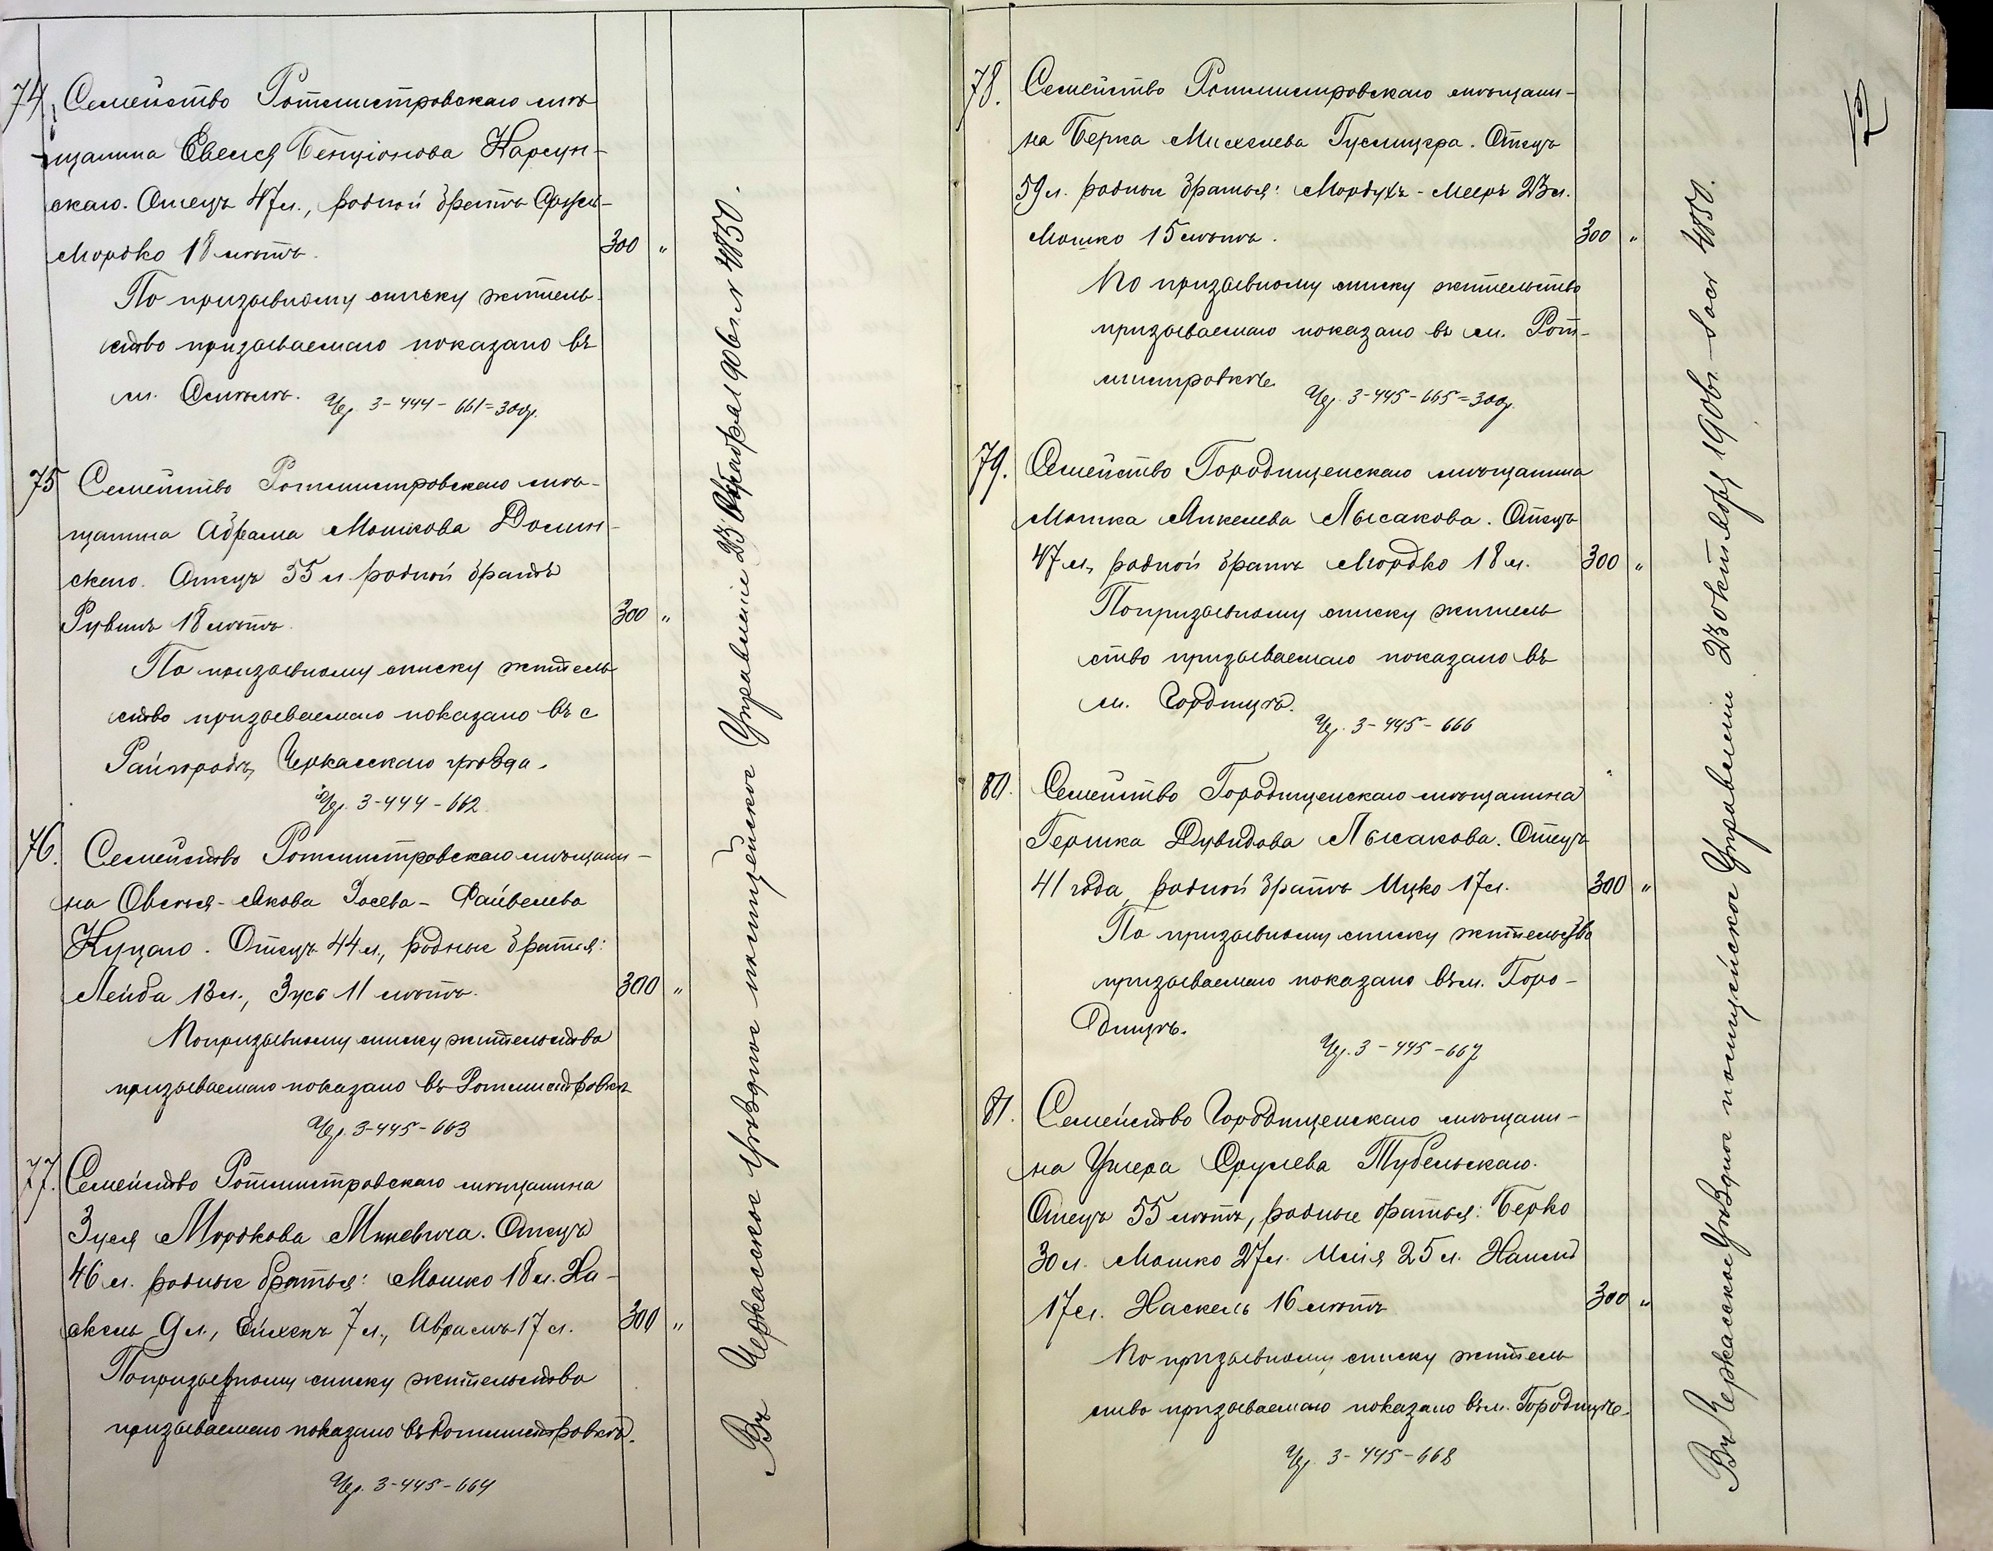 74. Семейство Ротмистровскаго мѣ-
щанина Евеля Бенціонова Карсун-
скаго. Отецъ 47 л., родной братъ Сруль-
Мордко 18 лѣтъ. 300 "
По призывному списку житель-
ство призываемаго показано въ
м. Смѣлѣ. Чер. 3-444-661=300р.
75 Семейство Ротмистровскаго мѣ-
щанина Абрама Мошкова Долин-
скаго. Отецъ 55 л. родной братъ
Рувинъ 18 лѣтъ. 300 "
По призывному списку житель
ство призываемаго показано въ с
Райгородѣ, Черкасскаго уѣзда.
Чер. 3-444-662
76. Семейство Ротмистровскаго мѣщани-
на Овсѣя-Якова Іосева-Файвелева
Куцаго. Отецъ 44 л., родные братья:
Лейба 13 л., Зусь 11 лѣтъ. 300 "
По призывному списку жительство
призываемаго показано въ Ротмистровкѣ
Чер. 3-445-663
77. Семейство Ротмистровскаго мѣщанина
Зуся Мордкова Миневича. Отецъ
46 л. родные братья: Мошко 18 л. Ха-
скель 9 л., Ейхенъ 7 л., Аврамъ 17 л. 300 "
По призывному списку жительство
призываемаго показано въ Ротмистровкѣ.
Чер. 3-445-664
Въ Черкасское Уѣздное полицейское Управленіе 23 Октября 1906 г. № 4850.
78. Семейство Ротмистровскаго мѣщани-
на Берка Михелева Гуслицера. Отецъ
59 л. родные братья: Мордухъ-Мееръ 23 л.
Мошко 15 лѣтъ. 300 "
По призывному списку жительство
призываемаго показано въ м. Рот-
мистровкѣ. Чер. 3-445-665=300р.
79. Семейство Городищенскаго мѣщанина
Мошка Янкелева Лысакова. Отецъ
47 л., родной братъ Мордко 18 л. 300 "
По призывному списку житель
ство призываемаго показано въ
м. Городищѣ.
Чер. 3-445-666
80. Семейство Городищенскаго мѣщанина
Гершка Дувидова Лысакова. Отецъ
41 года, родной братъ Ицко 17 л. 300 "
По призывному списку жительство
призываемаго показано въ м. Горо-
дищѣ.
Чер. 3-445-667
81. Семейство Городищенскаго мѣщани-
на Ушера Срулева Тубельскаго.
Отецъ 55 лѣтъ, родные братья: Берко
30 л. Мошко 27 л. Илія 25 л.
17 л. Хаскель 16 лѣтъ 300 "
По призывному списку житель
ство призываемаго показано въ м. Городищѣ.
Чер. 3-445-668
Въ Черкасское Уѣздное полицейское Управленіе 23 октября 1906 г. 4850.